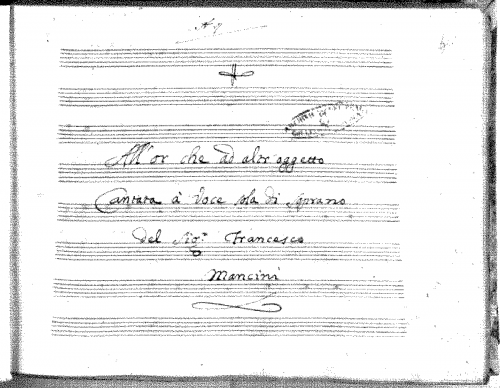 All'or che ad altr'oggetto
Cantata à Voce sola di Soprano
del Sig.r Francesco
Mancini